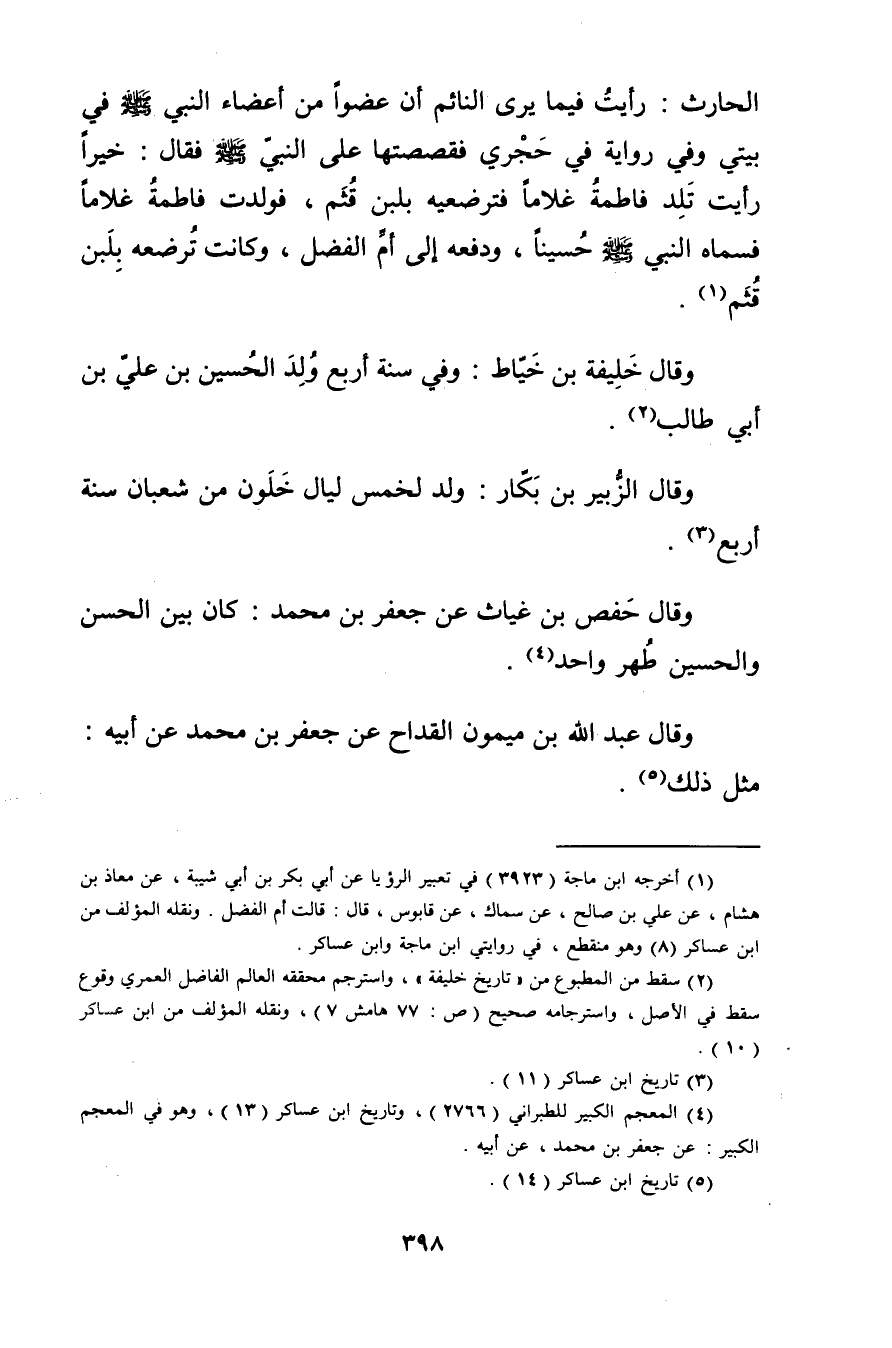 الحارث : رأيتُ فيما يرى النائم أن عضواً من أعضاء النبي ﷺ في
بيتي وفي رواية في حَجْري فقصصتها على النبيّ ﷺ فقال : خيراً
رأيت تَلِد فاطمةُ غلاماً فترضعيه بلبن قُثَم ، فولدت فاطمةُ غلاماً
فسماه النبي ﷺ حُسيناً ، ودفعه إلى أمِّ الفضل ، وكانت تُرضعه بِلَبن
قُثَم(١) .
وقال خَلِيفة بن خَيّاط : وفي سنة أربع وُلِدَ الحُسين بن عليّ بن
أبي طالب(٢) .
وقال الزُّبير بن بَكّار : ولد لخمس ليال خَلَون من شعبان سنة
أربع(٣) .
وقال حَفص بن غياث عن جعفر بن محمد : كان بين الحسن
والحسين طُهر واحد(٤) .
وقال عبد الله بن ميمون القداح عن جعفر بن محمد عن أبيه :
مثل ذلك(٥) .
(١) أخرجه ابن ماجة ( ٣٩٢٣ ) في تعبير الرؤيا عن أبي بكر بن أبي شيبة ، عن معاذ بن
هشام ، عن علي بن صالح ، عن سماك ، عن قابوس ، قال : قالت أم الفضل . ونقله المؤلف من
ابن عساكر (٨) وهو منقطع ، في روايتي ابن ماجة وابن عساكر .
(٢) سقط من المطبوع من « تاريخ خليفة » ، واسترجم محققه العالم الفاضل العمري وقوع
سقط في الأصل ، واسترجامه صحيح ( ص : ٧٧ هامش ٧ ) ، ونقله المؤلف من ابن عساكر
( ١٠ ) .
(٣) تاريخ ابن عساكر ( ١١ ) .
(٤) المعجم الكبير للطبراني ( ٢٧٦٦ ) ، وتاريخ ابن عساكر ( ١٣ ) ، وهو في المعجم
الكبير : عن جعفر بن محمد ، عن أبيه .
(٥) تاريخ ابن عساكر ( ١٤ ) .
٣٩٨